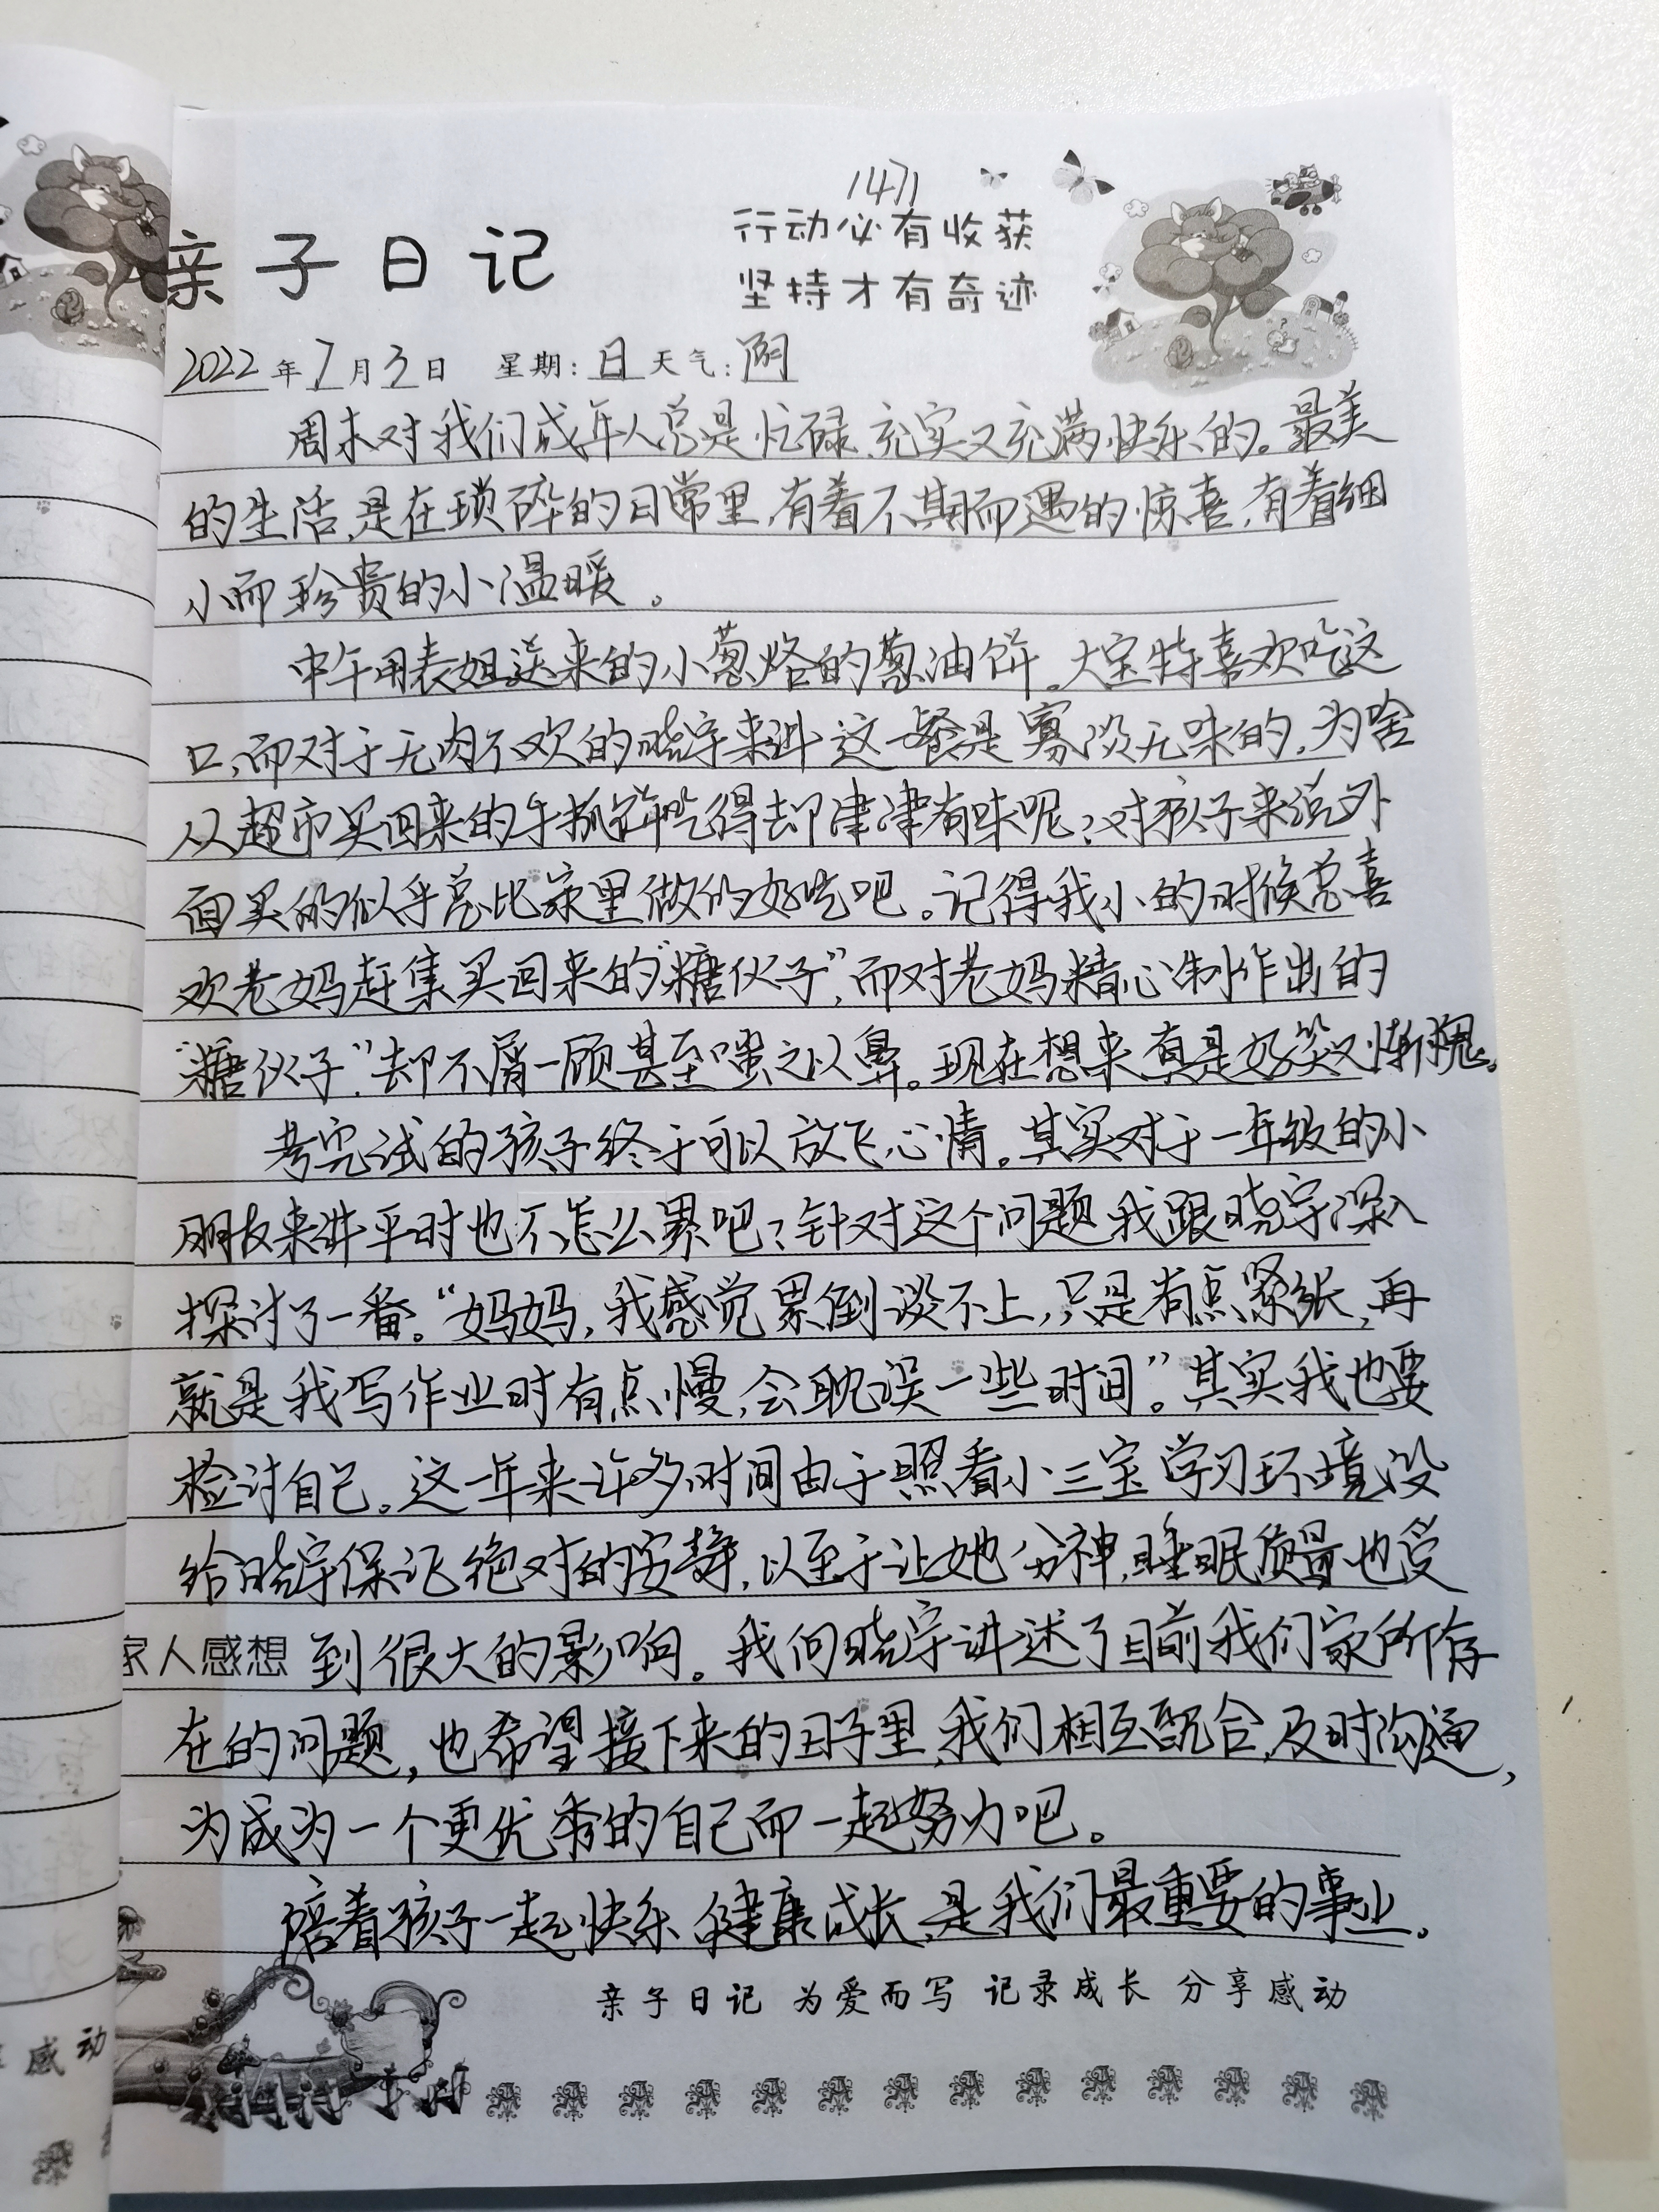 1471
亲子日记
行动必有收获
坚持才有奇迹
2022年7月3日 星期:日 天气:阴
周末对我们成年人总是忙碌、充实又充满快乐的。最美
的生活,是在琐碎的日常里,有着不期而遇的惊喜,有着细
小而珍贵的小温暖。
中午用表姐送来的小葱烙的葱油饼。大宝特喜欢吃这
口,而对于无肉不欢的晓宇来讲这一餐是寡淡无味的,为啥
从超市买回来的手抓饼吃得却津津有味呢?对孩子来说外
面买的似乎总比家里做的好吃吧。记得我小的时候总喜
欢老妈赶集买回来的“糖伙子”,而对老妈精心制作出的
“糖伙子”却不屑一顾甚至嗤之以鼻。现在想来真是好笑又惭愧。
考完试的孩子终于可以放飞心情。其实对于一年级的小
朋友来讲平时也不怎么累吧?针对这个问题我跟晓宇深入
探讨了一番。“妈妈,我感觉累倒谈不上,只是有点紧张,再
就是我写作业时有点慢,会耽误一些时间”。其实我也要
检讨自己。这一年来许多时间由于照看小三宝学习环境没
给晓宇保证绝对的安静,以至于让她分神,睡眠质量也受
家人感想 到很大的影响。我向晓宇讲述了目前我们家所存
在的问题,也希望接下来的日子里,我们相互配合,及时沟通,
为成为一个更优秀的自己而一起努力吧。
陪着孩子一起快乐、健康成长,是我们最重要的事业。
亲子日记 为爱而写 记录成长 分享感动
感动